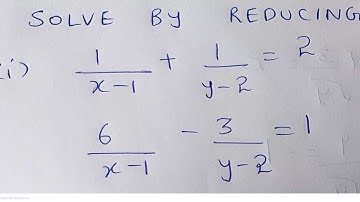 SOLVE BY REDUCING
(i) 1/(x-1) + 1/(y-2) = 2
6/(x-1) - 3/(y-2) = 1